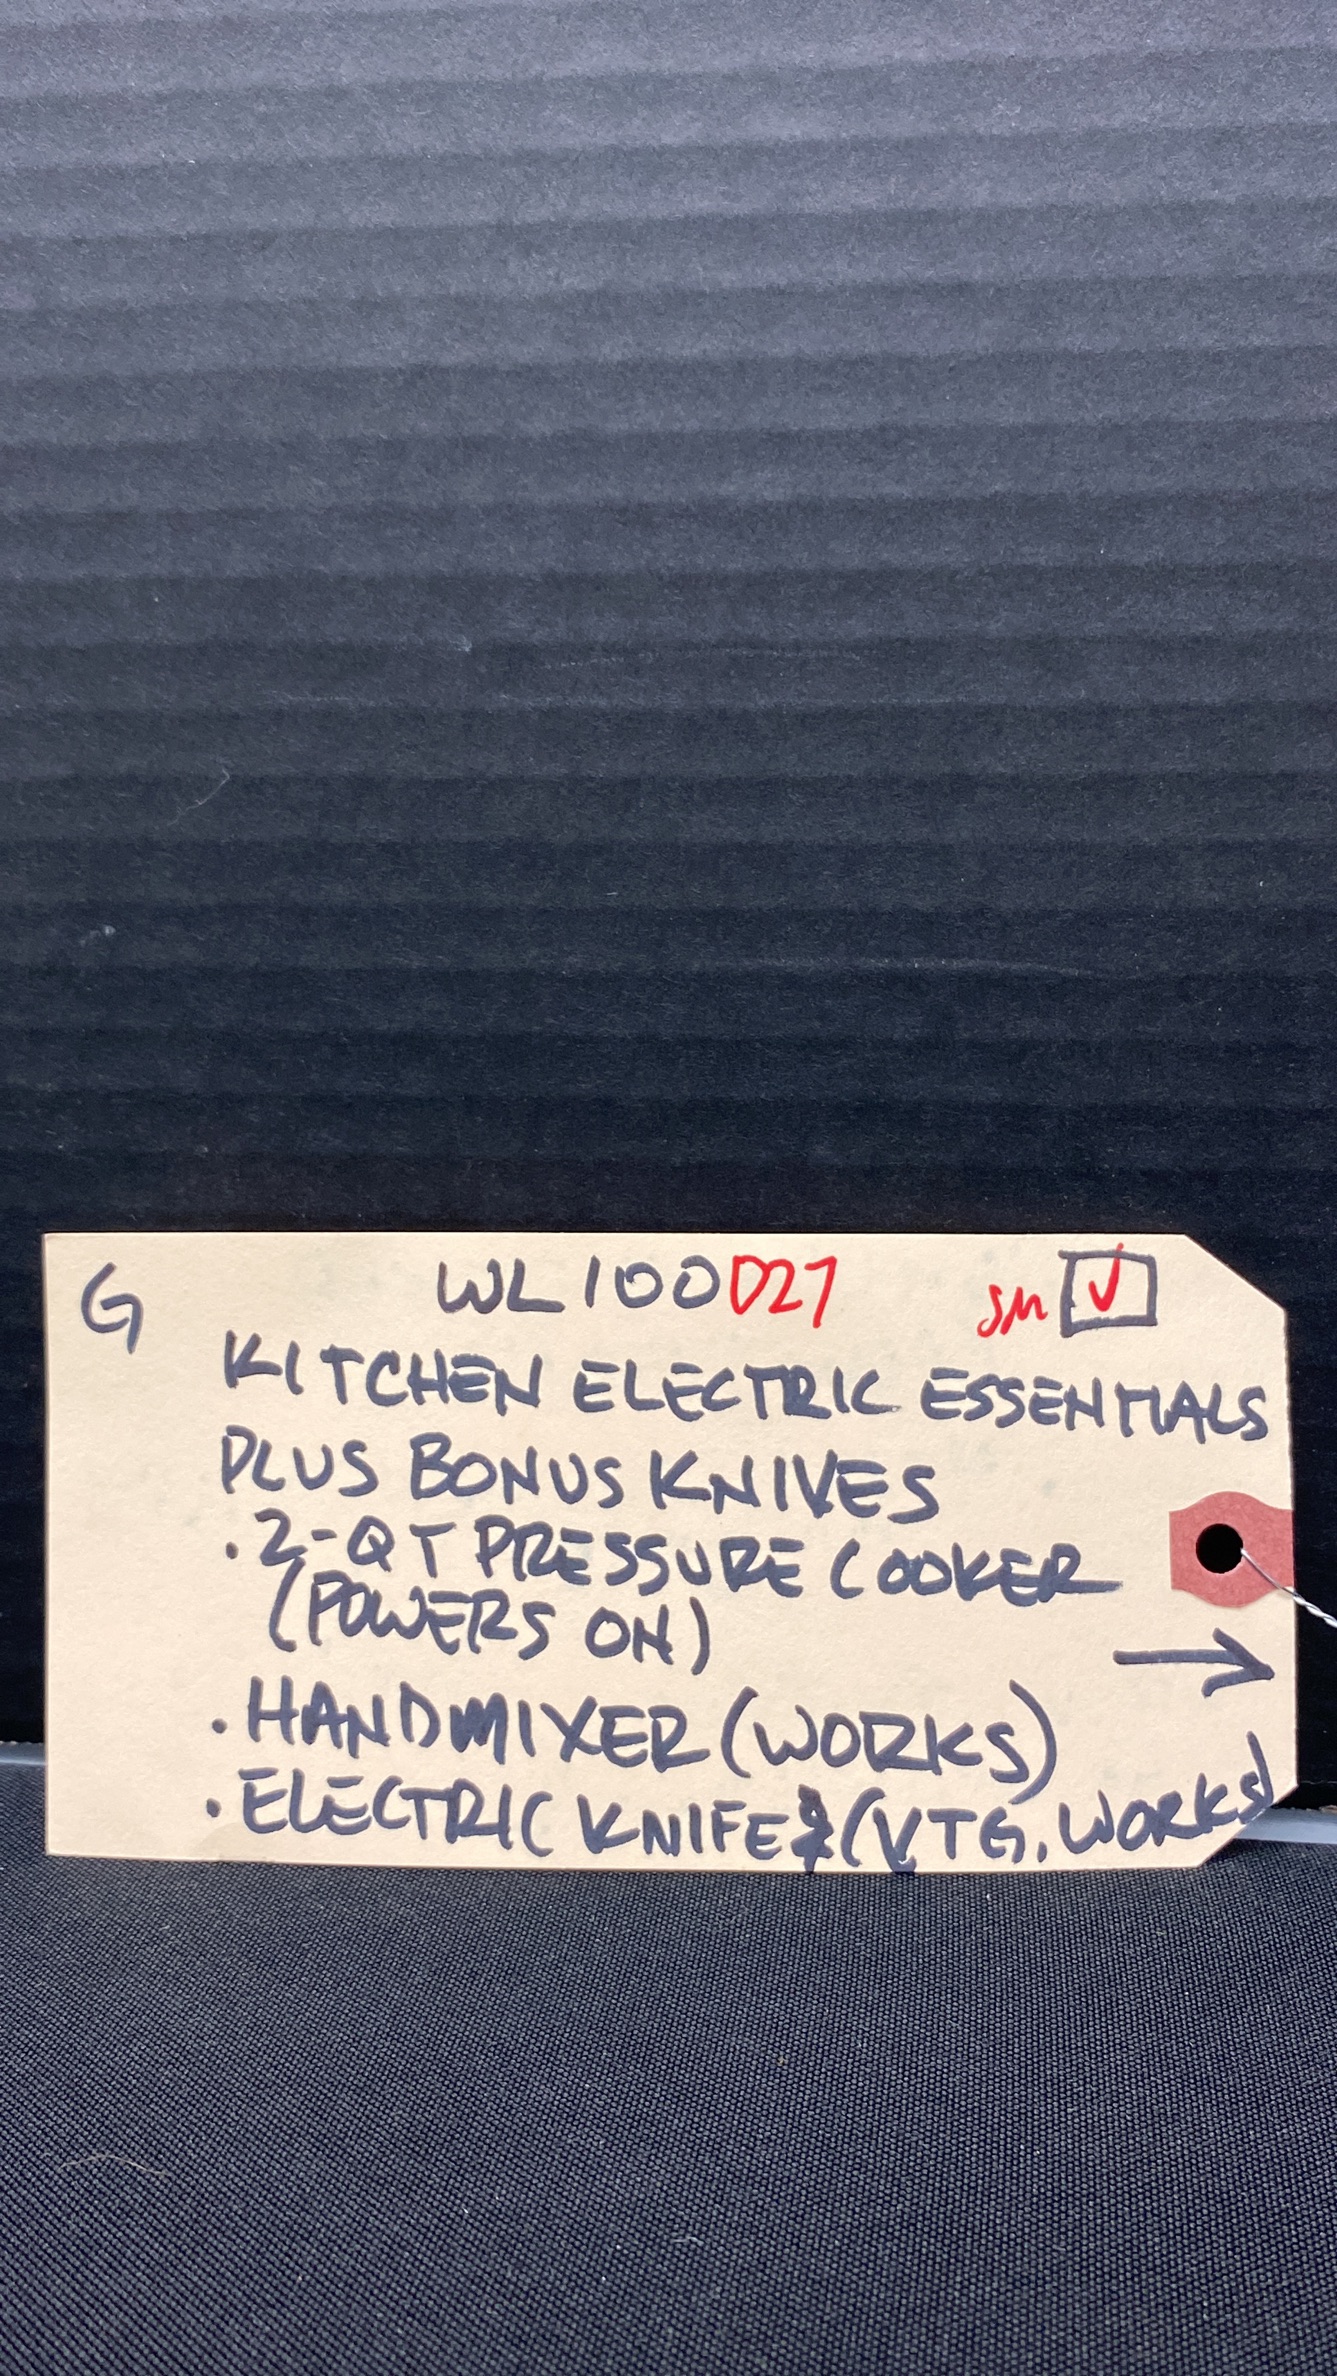 G WL100D27 SM ✓
KITCHEN ELECTRIC ESSENTIALS
PLUS BONUS KNIVES
· 2-QT PRESSURE COOKER
(POWERS ON)
→
· HANDMIXER (WORKS)
· ELECTRIC KNIFE (VTG, WORKS)